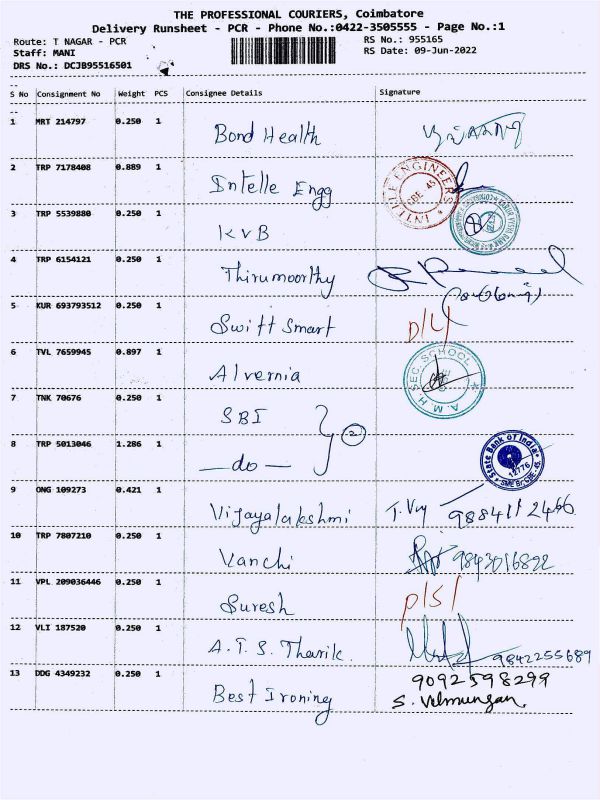 THE PROFESSIONAL COURIERS, Coimbatore
Delivery Runsheet - PCR - Phone No.:0422-3505555 - Page No.:1
Route: T NAGAR - PCR
RS No.: 955165
Staff: MANI
RS Date: 09-Jun-2022
DRS No.: DCJB95516501
S No Consignment No Weight PCS Consignee Details Signature
1 MRT 214797 0.250 1 Bond Health
2 TRP 7178408 0.889 1 Intelle Engg INTELLE ENGINEERS CBE 45
3 TRP 5539880 0.250 1 KVB
4 TRP 6154121 0.250 1 Thirumoorthy
5 KUR 693793512 0.250 1 Swift Smart D/L/
6 TVL 7659945 0.897 1 Alvernia A.M.H. SEC. SCHOOL
7 TNK 70676 0.250 1 SBI
2
8 TRP 5013046 1.286 1 —do— State Bank of India 12776 SME Br, CBE-45
9 ONG 109273 0.421 1 Vijayalakshmi
10 TRP 7807210 0.250 1 Vanchi 9843016822
11 VPL 209036446 0.250 1 Suresh P/S/
12 VLI 187520 0.250 1 A.T.S. Tharik. 9842255689
13 DDG 4349232 0.250 1 Best Ironing 9092598299
S. Velmurugan.